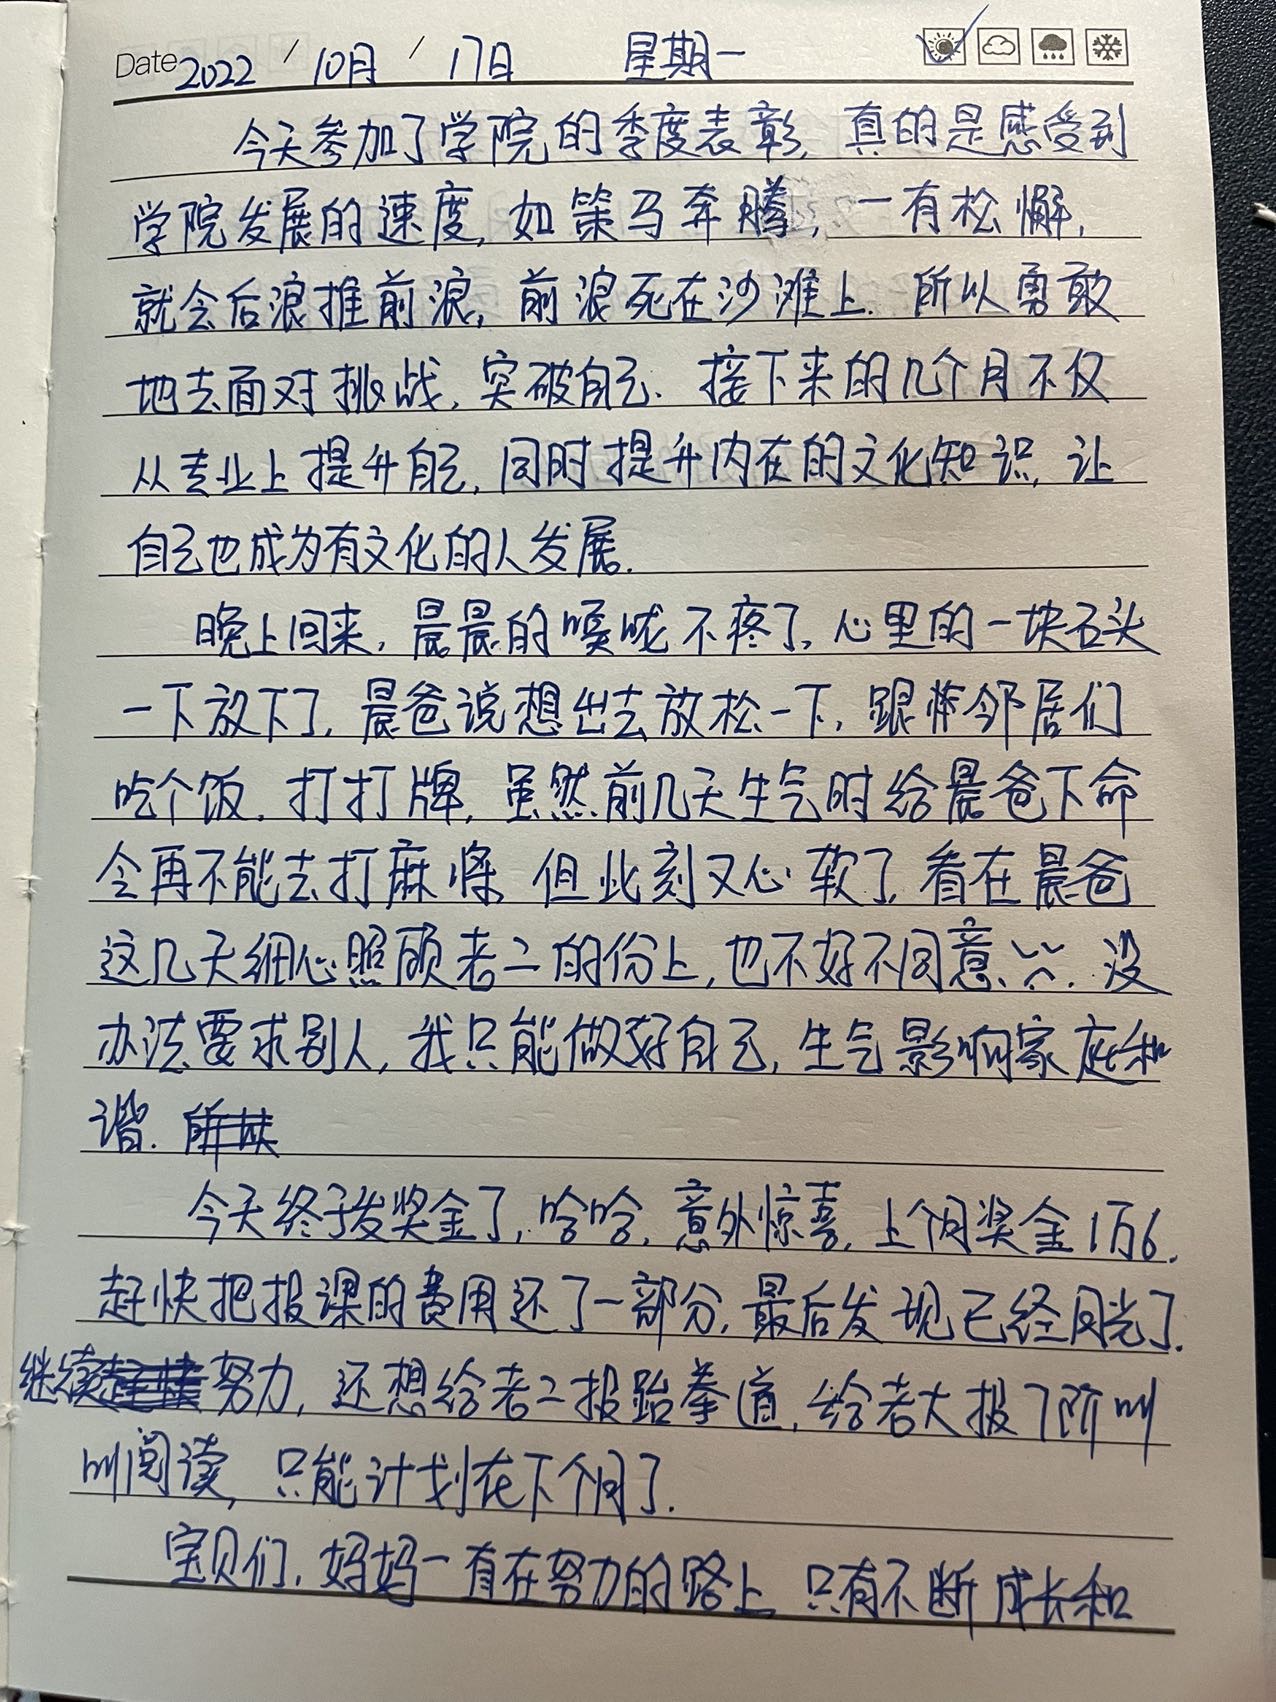 Date 2022 / 10月 / 17日 星期一
今天参加了学院的季度表彰，真的是感受到
学院发展的速度，如策马奔腾，一有松懈，
就会后浪推前浪，前浪死在沙滩上.所以勇敢
地去面对挑战，突破自己.接下来的几个月不仅
从专业上提升自己，同时提升内在的文化知识，让
自己也成为有文化的人发展.
晚上回来，晨晨的喉咙不疼了，心里的一块石头
一下放下了，晨爸说想出去放松一下，跟 邻居们
吃个饭，打打牌，虽然前几天生气时给晨爸下命
令再不能去打麻将，但此刻又心软了，看在晨爸
这几天细心照顾老二的份上，也不好不同意.没
办法要求别人，我只能做好自己，生气影响家庭和
谐.
今天终于发奖金了，哈哈，意外惊喜，上个月奖金1万6，
赶快把报课的费用还了一部分，最后发现已经月光了.
继续努力，还想给老二报跆拳道，给老大报了阶叫
叫阅读，只能计划在下个月了.
宝贝们，妈妈一直在努力的路上，只有不断成长和